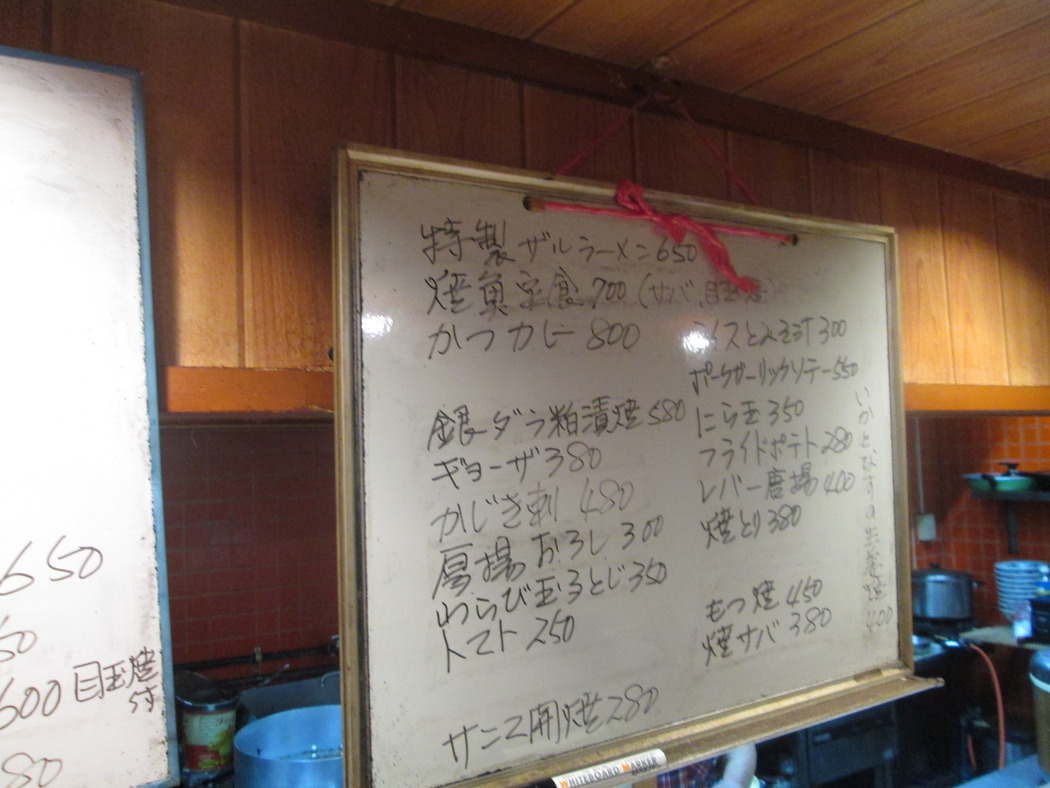 特製ザルラーメン650
焼魚定食700(サバ、目玉焼)
かつカレー800
銀ダラ粕漬焼580
ギョーザ380
かじき刺 480
厚揚おろし300
わらび玉子とじ350
トマト250
サンマ開焼280
ライスとみそ汁300
ポークガーリックソテー550
にら玉350
フライドポテト280
レバー唐揚400
焼とり380
もつ焼450
焼サバ380
いかとなすの生姜焼400
650
50
600目玉焼
付
80
WHITEBOARD MARKER